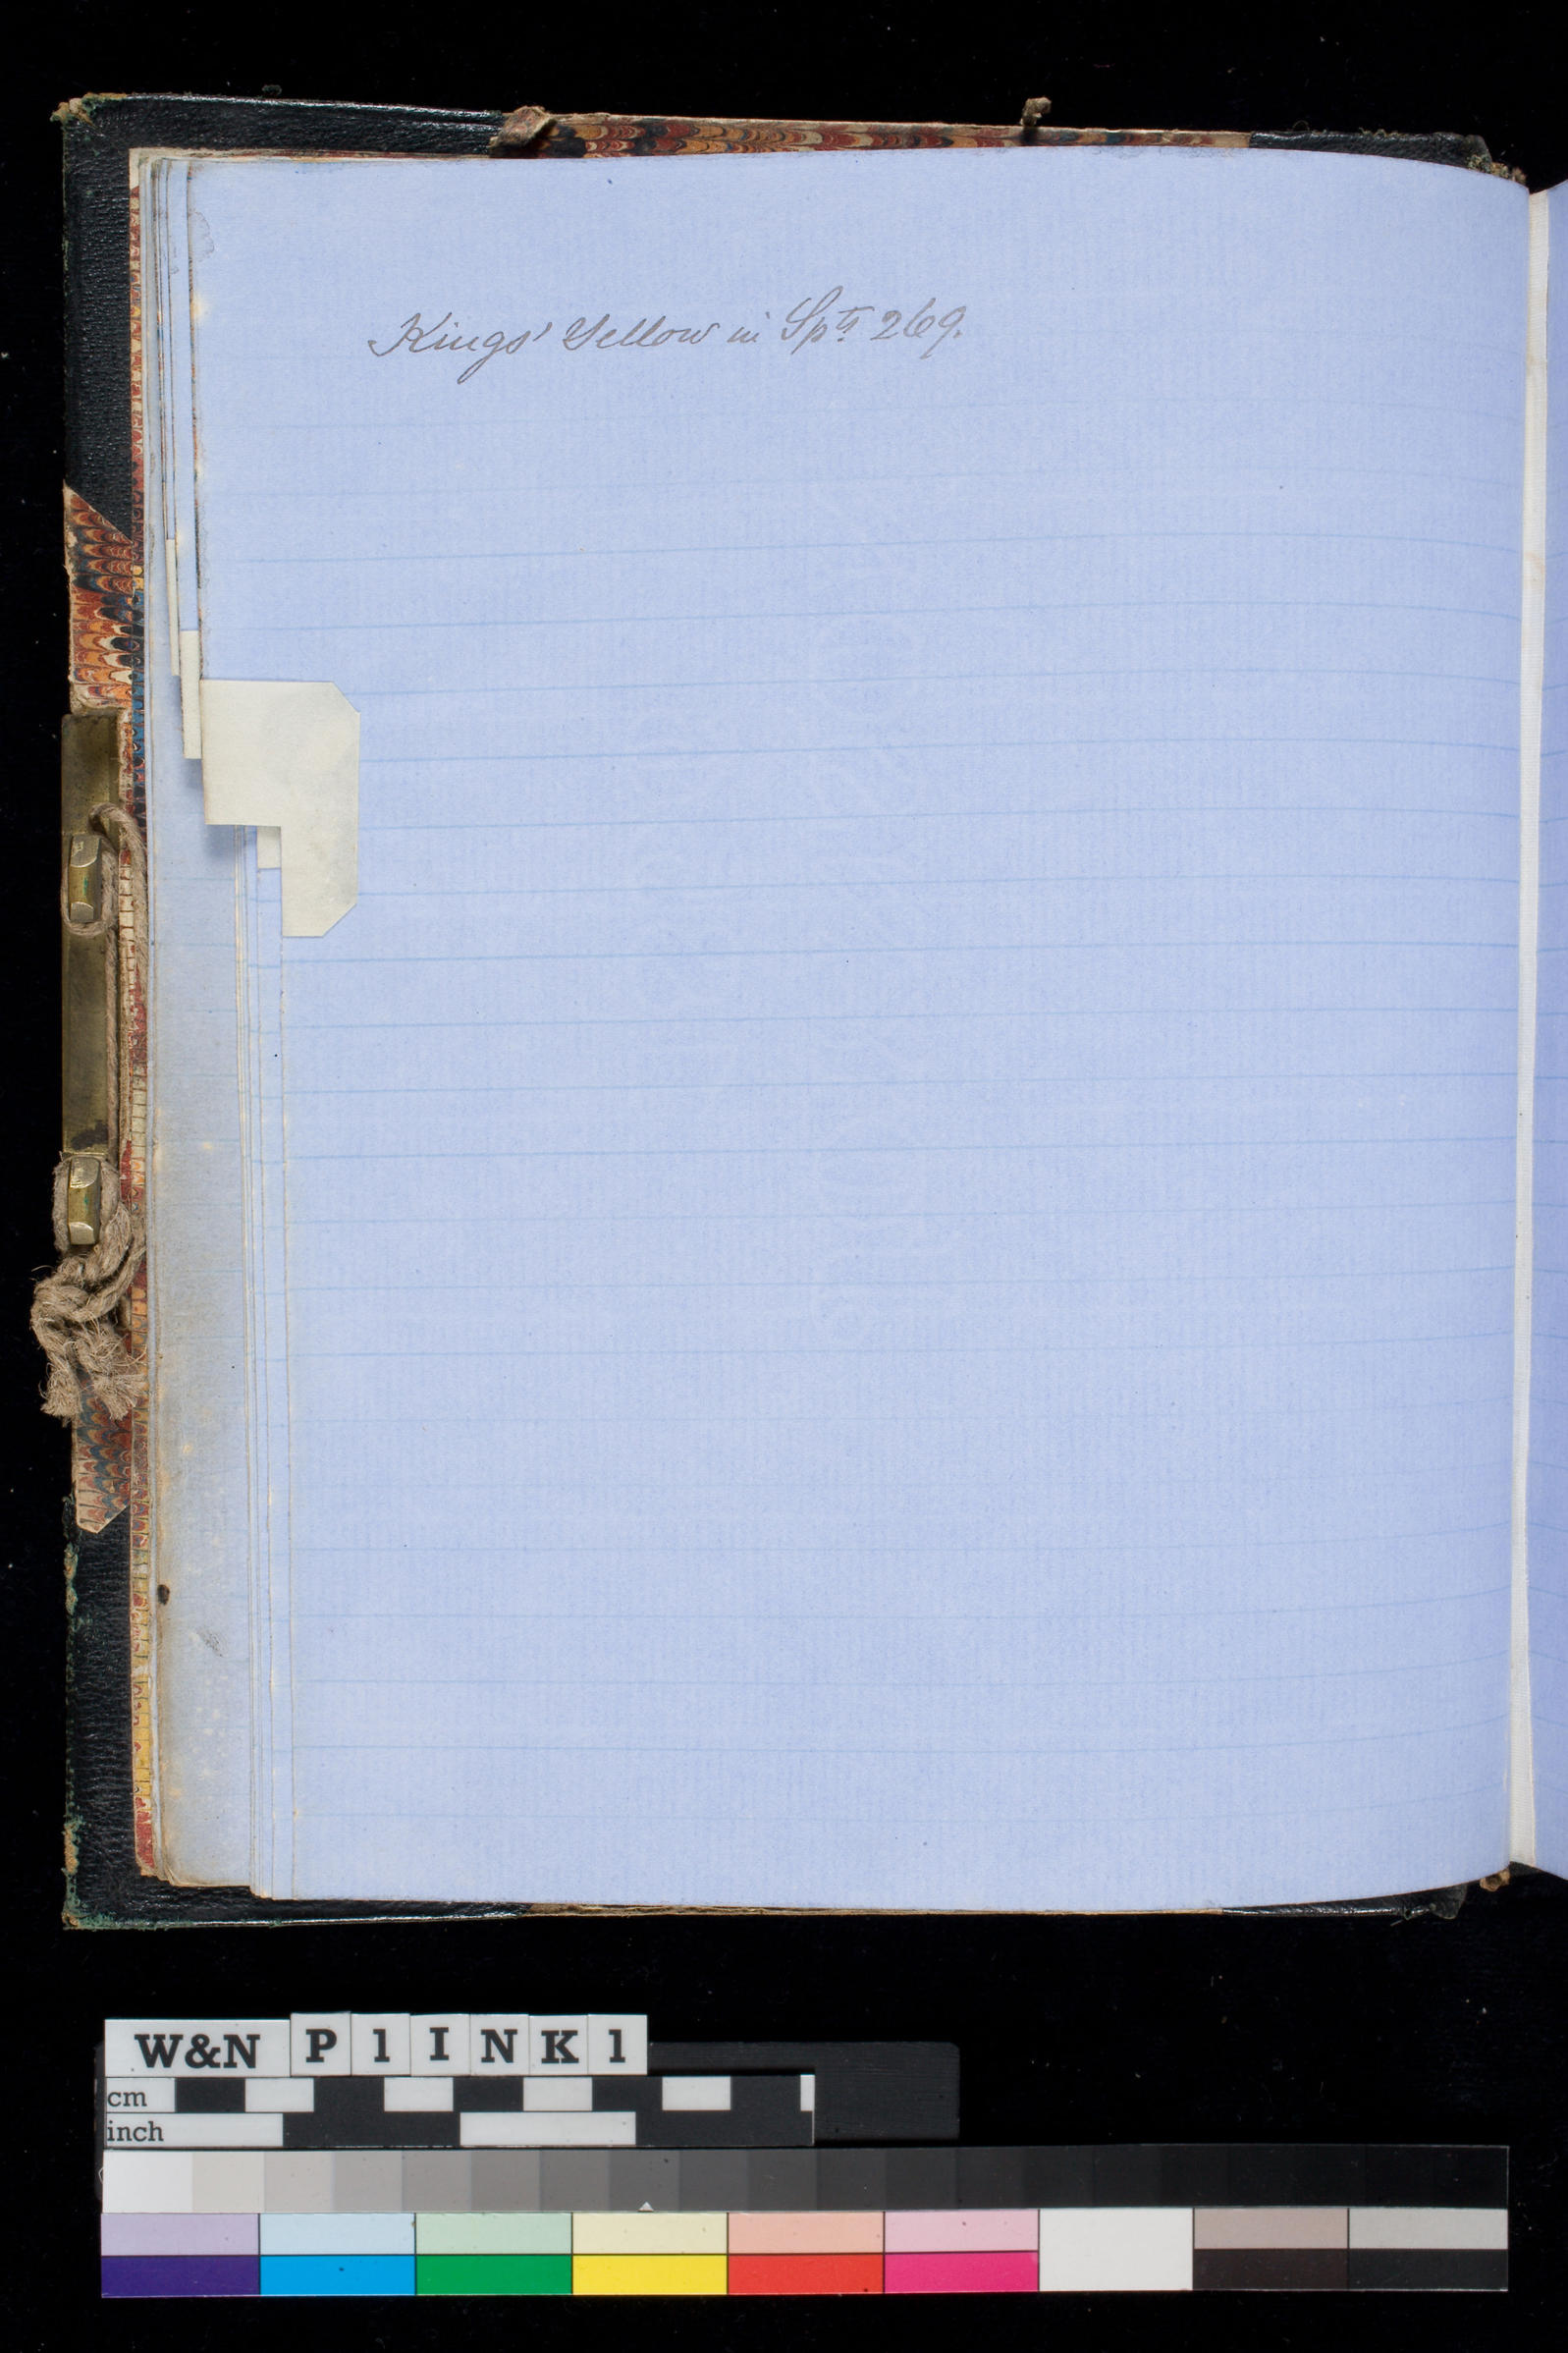 Kings' Yellow in Spts 269.
W&N P1INK1
cm
inch